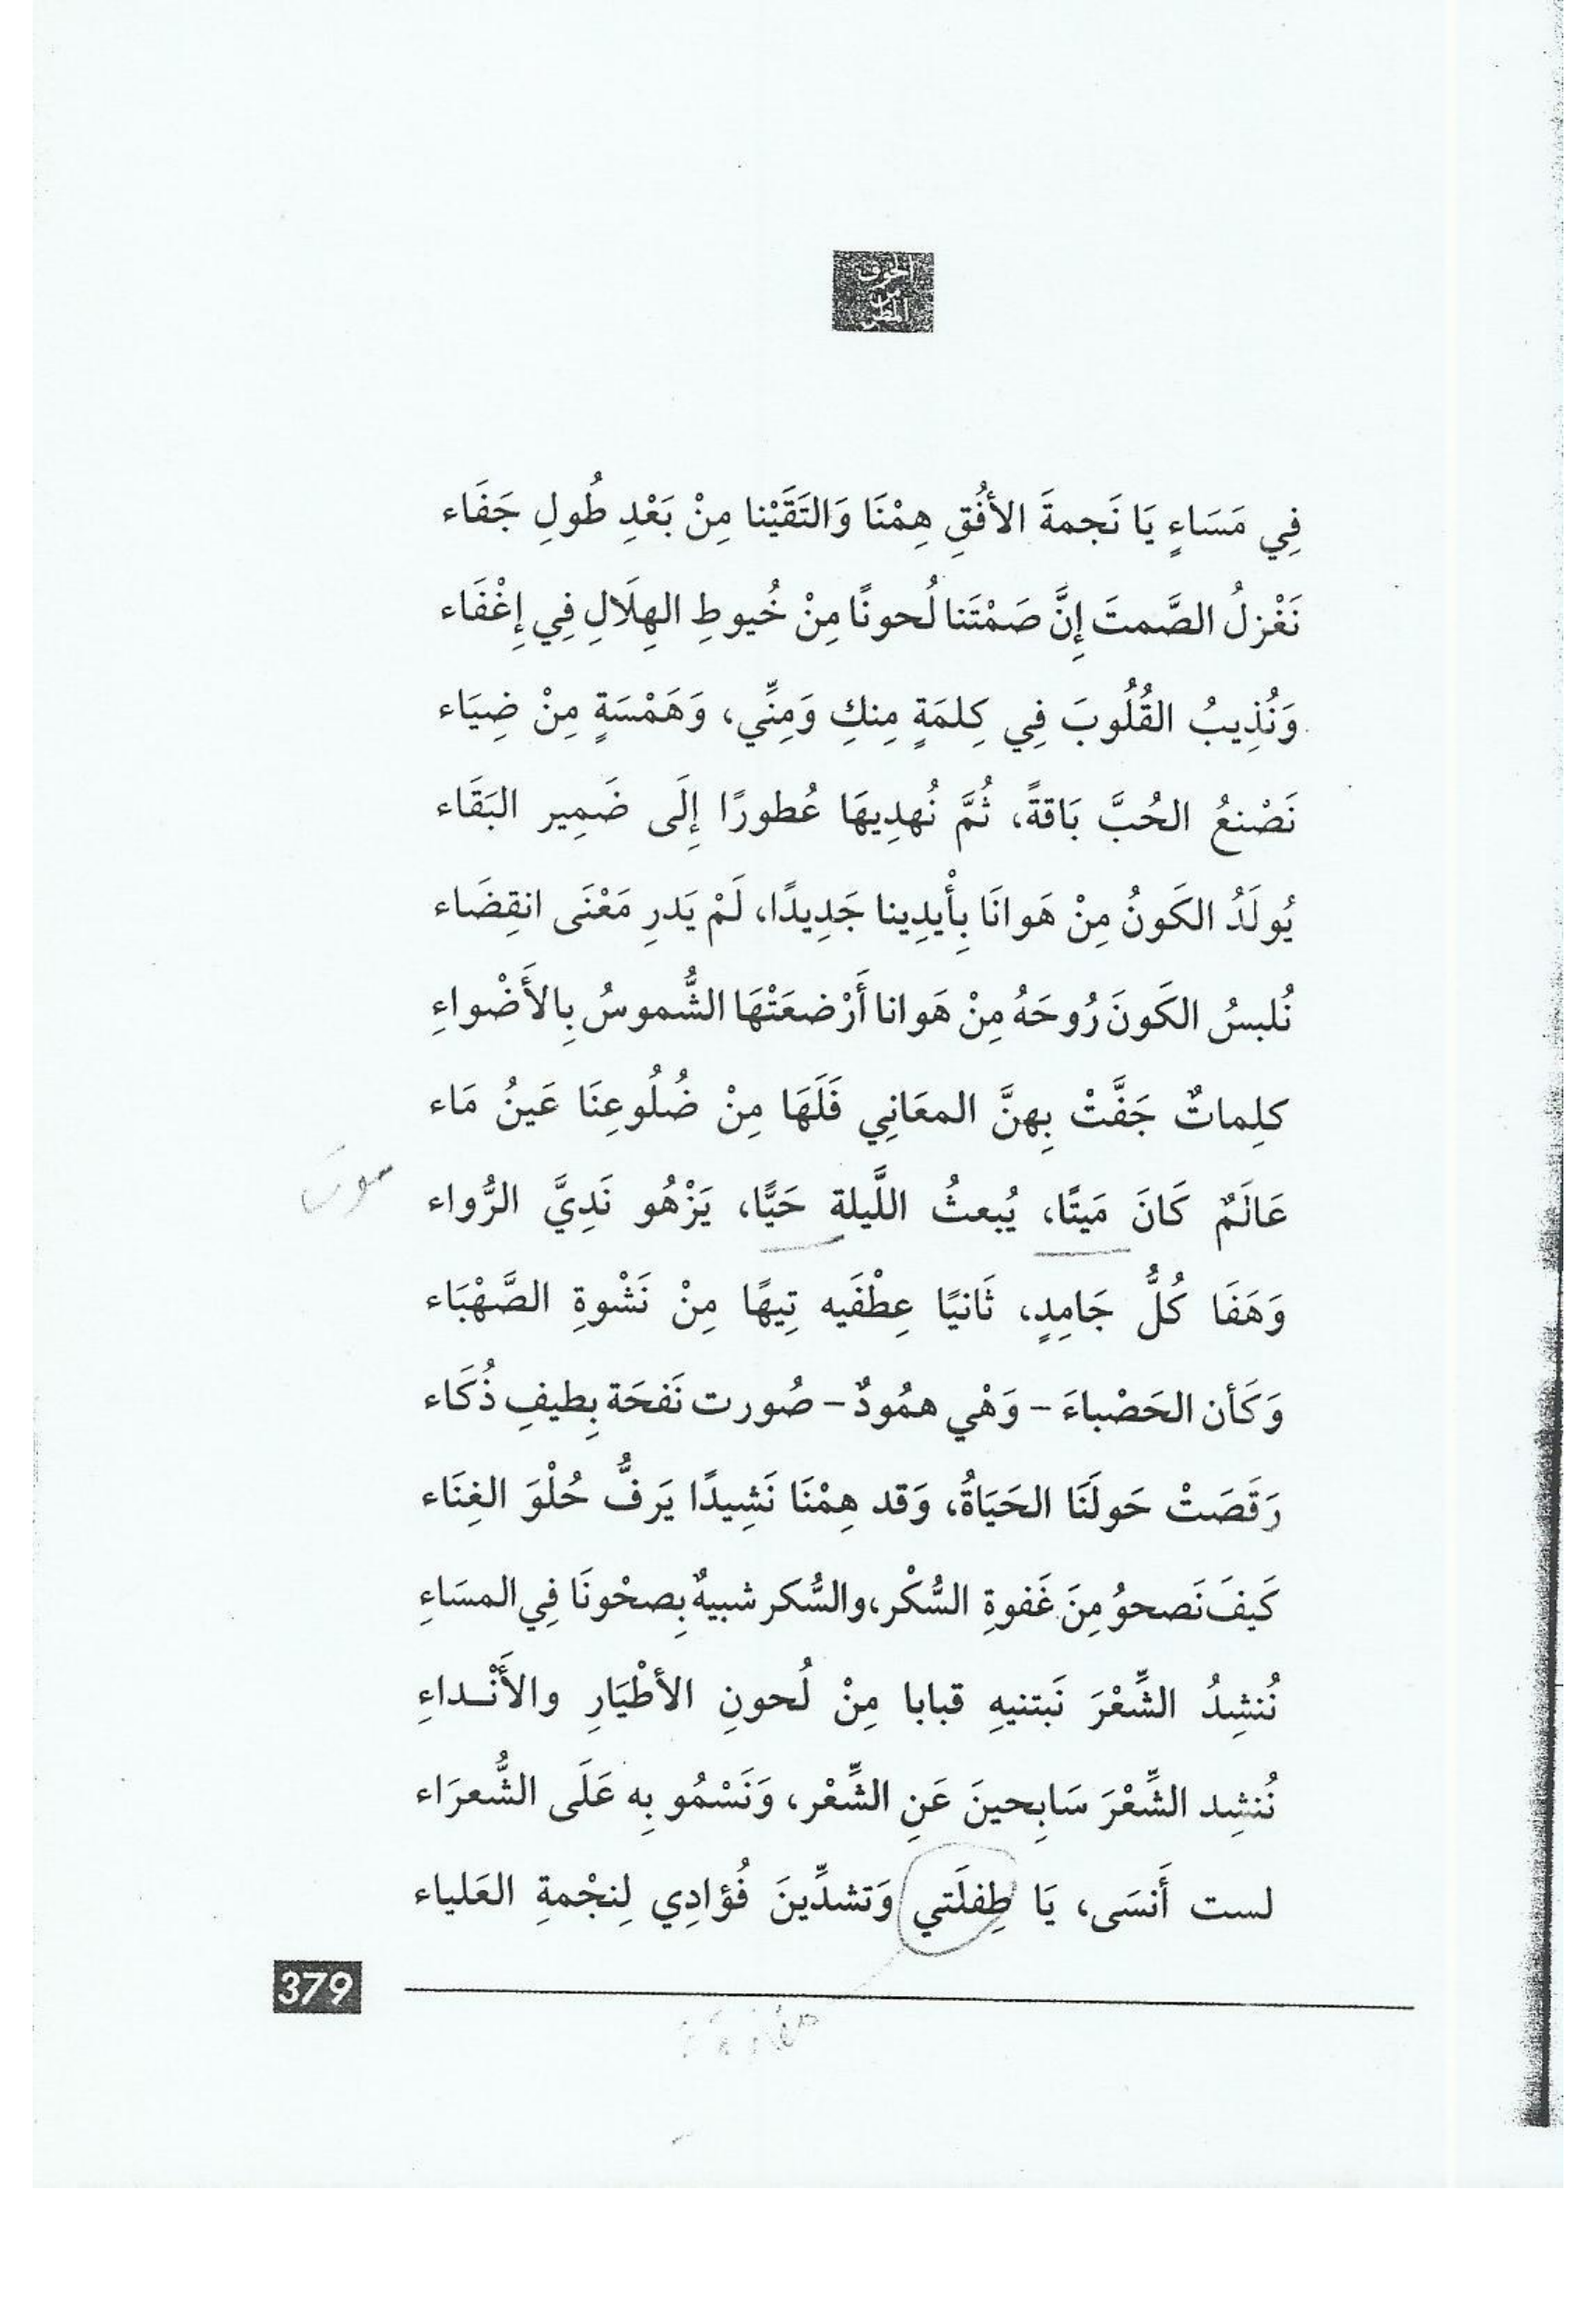 الخوف
من
المطر
فِي مَسَاءٍ يَا نَجمةَ الأفُقِ هِمْنَا وَالتَقَيْنا مِنْ بَعْدِ طُولِ جَفَاء
نَغْزلُ الصَّمتَ إِنَّ صَمْتَنا لُحونًا مِنْ خُيوطِ الهِلَالِ فِي إِغْفَاء
وَنُذِيبُ القُلُوبَ فِي كِلمَةٍ مِنكِ وَمِنِّي، وَهَمْسَةٍ مِنْ ضِيَاء
نَصْنعُ الحُبَّ بَاقةً، ثُمَّ نُهدِيهَا عُطورًا إِلَى ضَمِير البَقَاء
يُولَدُ الكَونُ مِنْ هَوانَا بِأْيدِينا جَدِيدًا، لَمْ يَدرِ مَعْنَى انقِضَاء
نُلبسُ الكَونَ رُوحَهُ مِنْ هَوانا أَرْضعَتْهَا الشُّموسُ بِالأَضْواءِ
كلِماتٌ جَفَّتْ بِهنَّ المعَانِي فَلَهَا مِنْ ضُلُوعِنَا عَينُ مَاء
عَالَمٌ كَانَ مَيتًا، يُبعثُ اللَّيلة حَيًّا، يَزْهُو نَدِيَّ الرُّواء
وَهَفَا كُلُّ جَامِدٍ، ثَانيًا عِطْفَيه تِيهًا مِنْ نَشْوةِ الصَّهْبَاء
وَكَأن الحَصْباءَ - وَهْي همُودٌ - صُورت نَفحَة بِطيفِ ذُكَاء
رَقَصَتْ حَولَنَا الحَيَاةُ، وَقد هِمْنَا نَشِيدًا يَرفُّ حُلْوَ الغِنَاء
كَيفَ نَصحوُ مِنَ غَفوةِ السُّكْر، والسُّكر شبيهٌ بِصحْونَا فِي المسَاءِ
نُنشِدُ الشِّعْرَ نَبتنيهِ قبابا مِنْ لُحونِ الأطْيَارِ والأَنْـداءِ
نُنشِد الشِّعْرَ سَابِحينَ عَنِ الشِّعْر، وَنَسْمُو بِه عَلَى الشُّعرَاء
لست أَنسَى، يَا طِفلَتي وَتشدِّينَ فُؤادِي لِنجْمةِ العَلياء
379